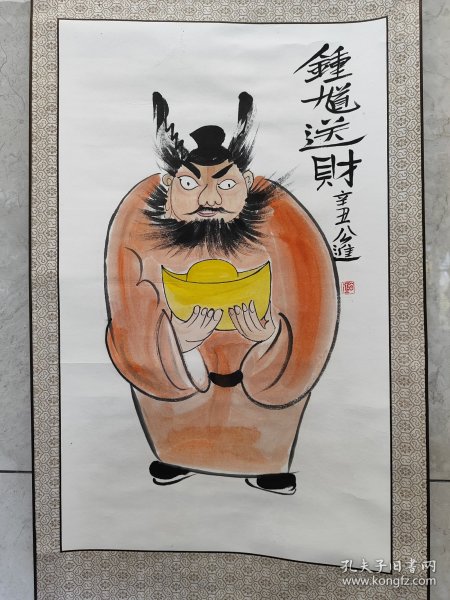 鍾馗送財
辛丑公進
孔夫子旧书网
www.kongfz.com